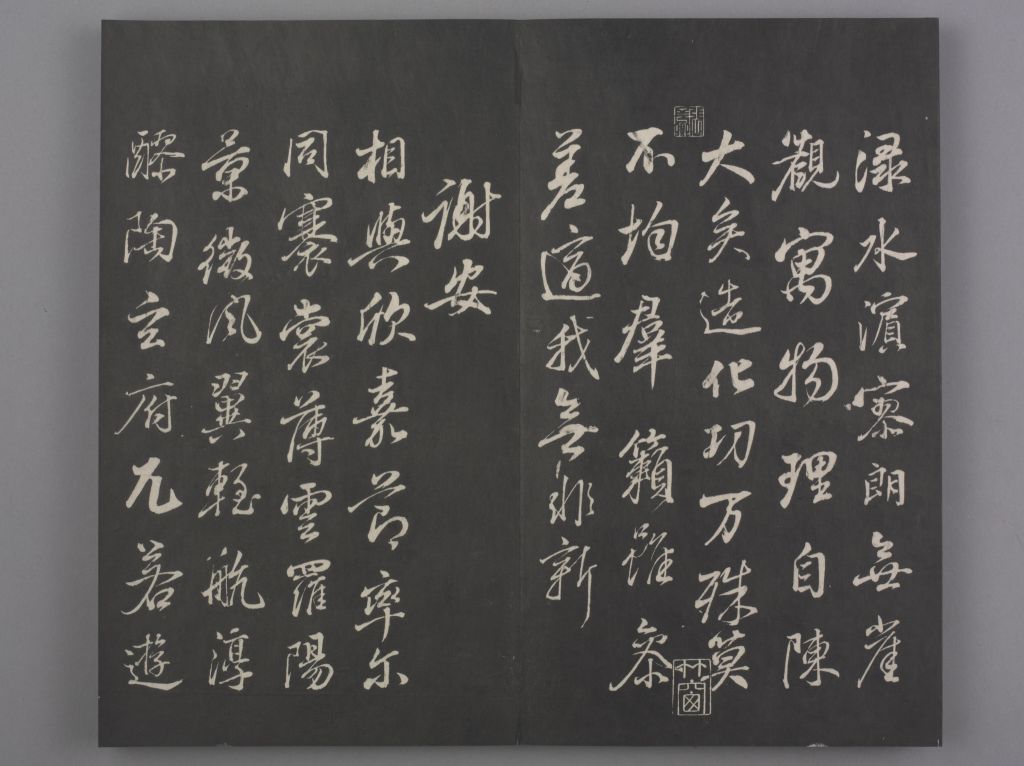 渌水濱寥朗無崖
觀寓物理自陳
大矣造化功万殊莫
不均羣籟雖参
差適我無非新
謝安
相與欣嘉節率尔
同褰裳薄雲羅陽
景微風翼輕航淳
醪陶玄府兀若遊